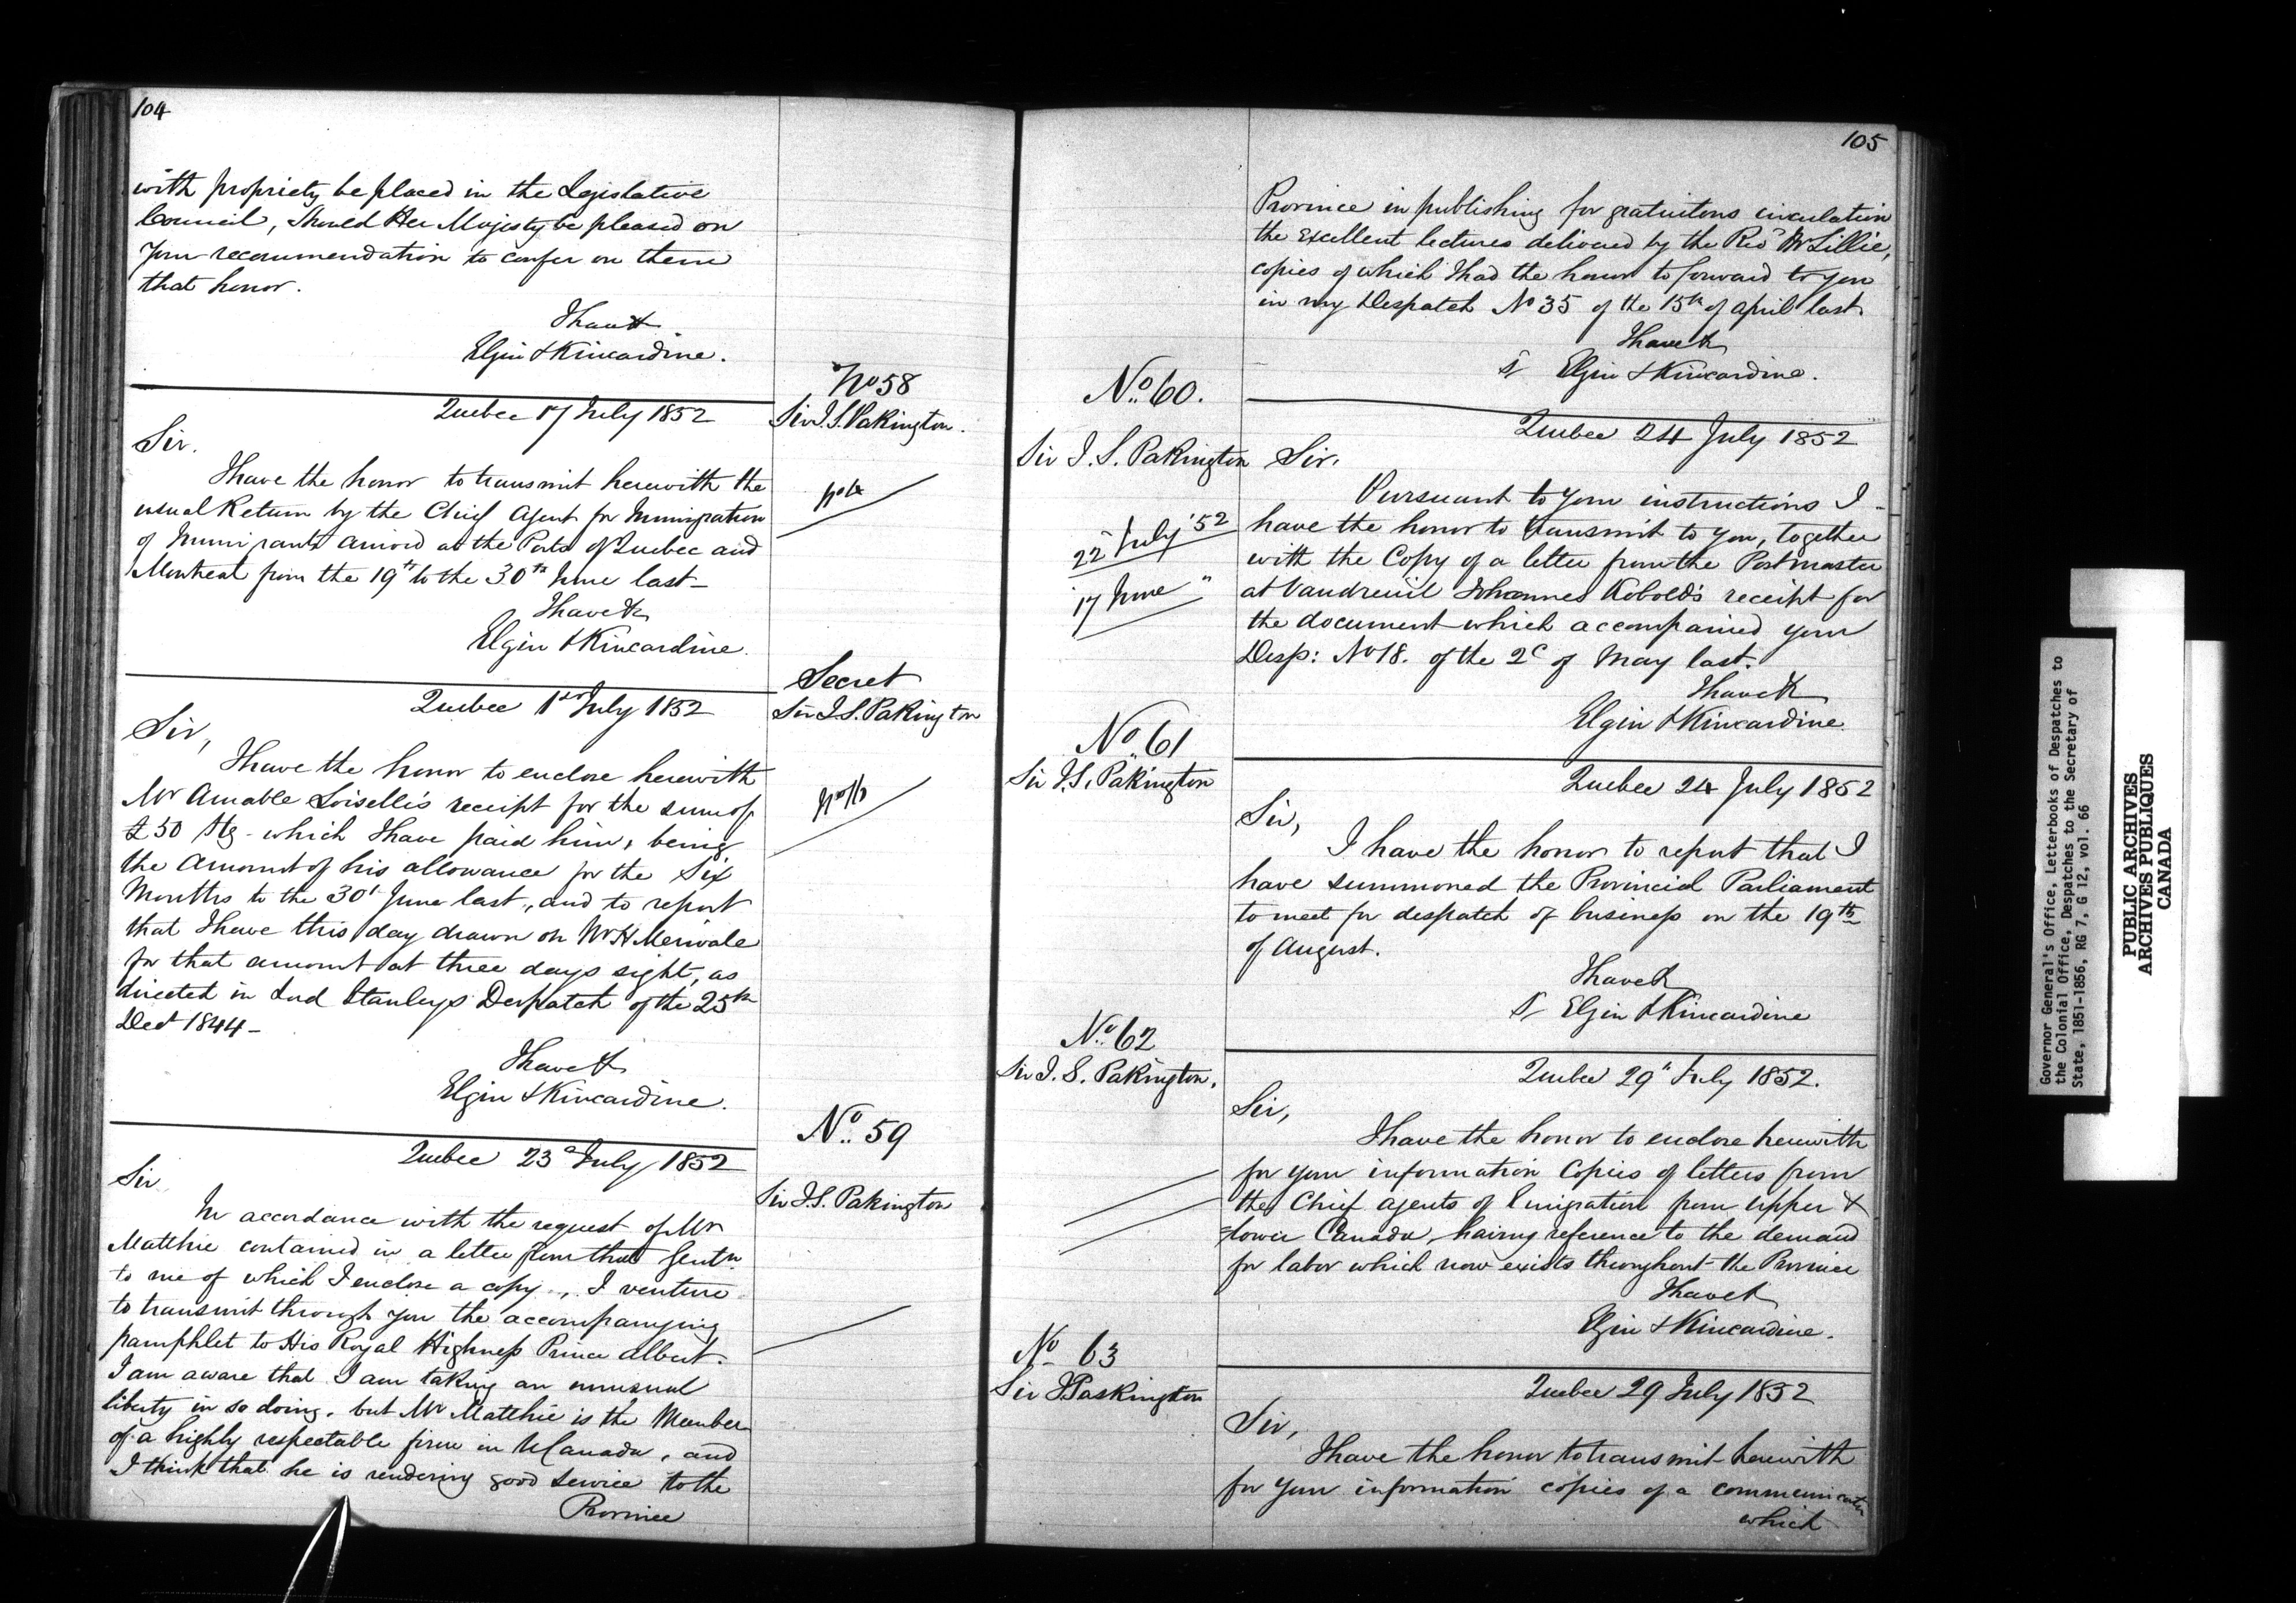 104
with propriety be placed in the Legislative
Council, Should Her Majesty be pleased on
your recommendation to confer on them
that honor.
I have &
Elgin & Kincardine.
No 58
Sir J. S. Pakington.
Quebec 17 July 1852
Sir.
I have the honor to transmit herewith the
usual Return by the Chief Agent for Immigration
of Immigrants arrived at the Ports of Quebec and
Montreal from the 19th to the 30th June last_
I have &
Elgin & Kincardine.
Secret
Sir J. S. Pakington
Quebec 1st July 1852
Sir,
I have the honor to enclose herewith
Mr Amable Loiselle's receipt for the sum of
£50 Stg - which I have paid him, being
the Amount of his allowance for the Six
Months to the 30t June last, and to report
that I have this day drawn on Mr H Merivale
for that amount at three days sight, as
directed in Lord Stanley's Despatch of the 25th
Dect 1844_
I have &
Elgin & Kincardine.
No. 59
Sir J. S. Pakington
Quebec 23d July 1852
Sir
In accordance with the request of Mr
Matthie contained in a letter from that Gentn
to me of which I enclose a copy, I venture
to transmit through you the accompanying
pamphlet to His Royal Highness Prince Albert.
I am aware that I am taking an unusual
liberty in so doing. but Mr Matthie is the Member
of a highly respectable firm in U Canada, and
I think that he is rendering good service to the
Province
105
Province in publishing for gratuitous circulation
the Excellent lectures delivered by the Revd Mr Lillie,
copies of which I had the honor to forward to you
in my Despatch No 35 of the 15th of April last.
I have &
Elgin & Kincardine.
No. 60.
Sir J. S. Pakington
22 July '52
17 June "
Quebec 24 July 1852
Sir.
Pursuant to your instructions I
have the honor to transmit to you, together
with the Copy of a letter from the Postmaster
at Vaudreuil Johannes Kobold's receipt for
the document which accompanied your
Desp: No 18. of the 2d of May last.
I have &
Elgin & Kincardine
No. 61
Sir J. S. Pakington
Quebec 24 July 1852
Sir,
I have the honor to report that I
have summoned the Provincial Parliament
to meet for despatch of business on the 19th
of August.
I have &
Elgin & Kincardine
No. 62
Sir J. S. Pakington.
Quebec 29th July 1852.
Sir,
I have the honor to enclose herewith
for your information Copies of letters from
the Chief Agents of Emigration from Upper &
Lower Canada, having reference to the demand
for labor which now exists throughout the Province
I have &
Elgin & Kincardine.
No 63
Sir J Paskington
Quebec 29 July 1852
Sir,
I have the honor to transmit herewith
for your information copies of a communicatn
which
Governor General's Office, Letterbooks of Despatches to
the Colonial Office, Despatches to the Secretary of
State, 1851-1856, RG 7, G 12, vol. 66
PUBLIC ARCHIVES
ARCHIVES PUBLIQUES
CANADA